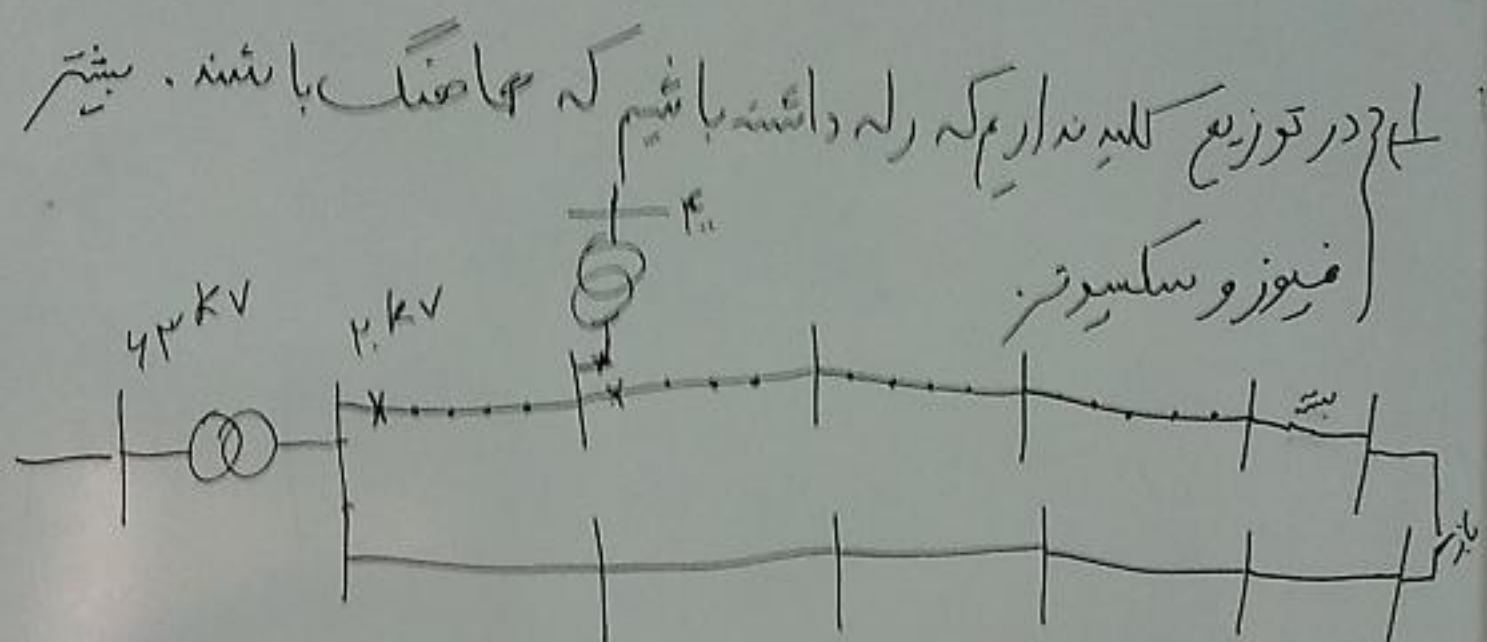 در توزیع کلید نداریم که رله داشته باشیم که هماهنگ باشند. بیشتر
فیوز و سکسیونر.
۴۰۰
۶۳ KV
۲۰ KV
بسته
باز